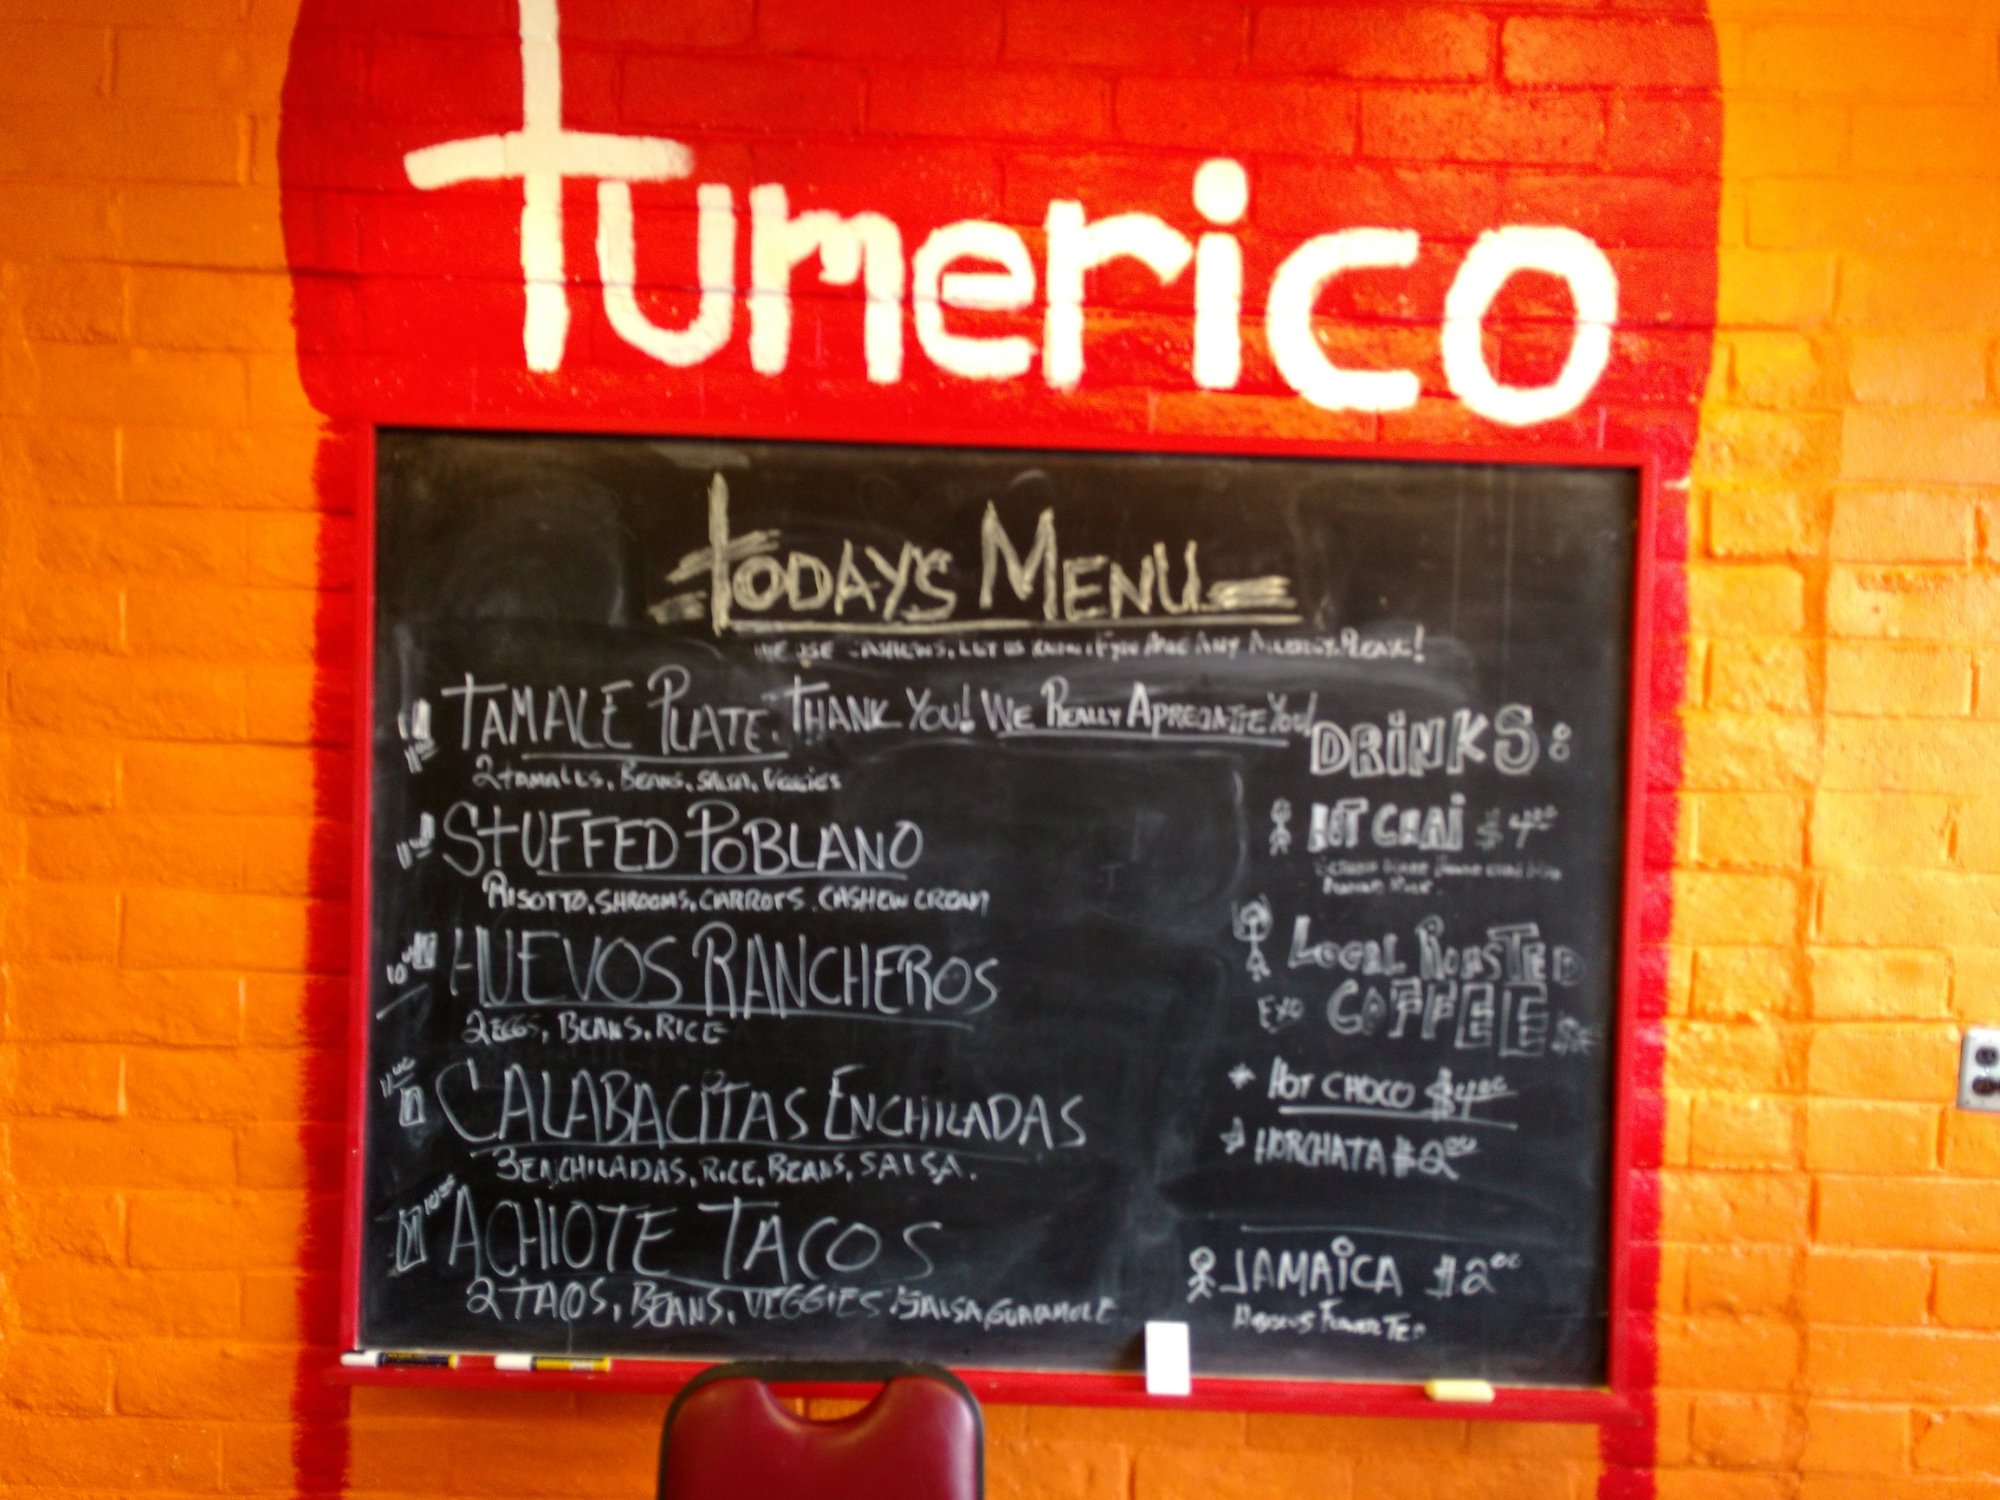 tumerico
TODAY'S MENU
WE USE CASHEWS, LET US KNOW IF YOU ARE ANY ALLERGY. PLEASE!
TAMALE PLATE. THANK YOU! WE REALLY APRECIATE YOU!
11.00
2 TAMALES, BEANS, SALSA, VEGGIES
STUFFED POBLANO
RISOTTO, SHROOMS, CARROTS, CASHEW CREAM
10.00 HUEVOS RANCHEROS
2 EGGS, BEANS, RICE
11.00 CALABACITAS ENCHILADAS
3 ENCHILADAS, RICE, BEANS, SALSA.
10.50 ACHIOTE TACOS
2 TACOS, BEANS, VEGGIES, SALSA, GUACAMOLE
DRiNKS:
HOT CHAi $4.00
LOCAL ROASTED
EXO COFFEE
HOT CHOCO $4.00
HORCHATA $2.00
JAMAiCA $2.00
FLOWER TEA